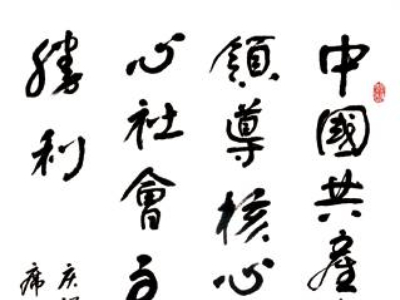 中國共產
領導核心
心社會
勝利
庆
席